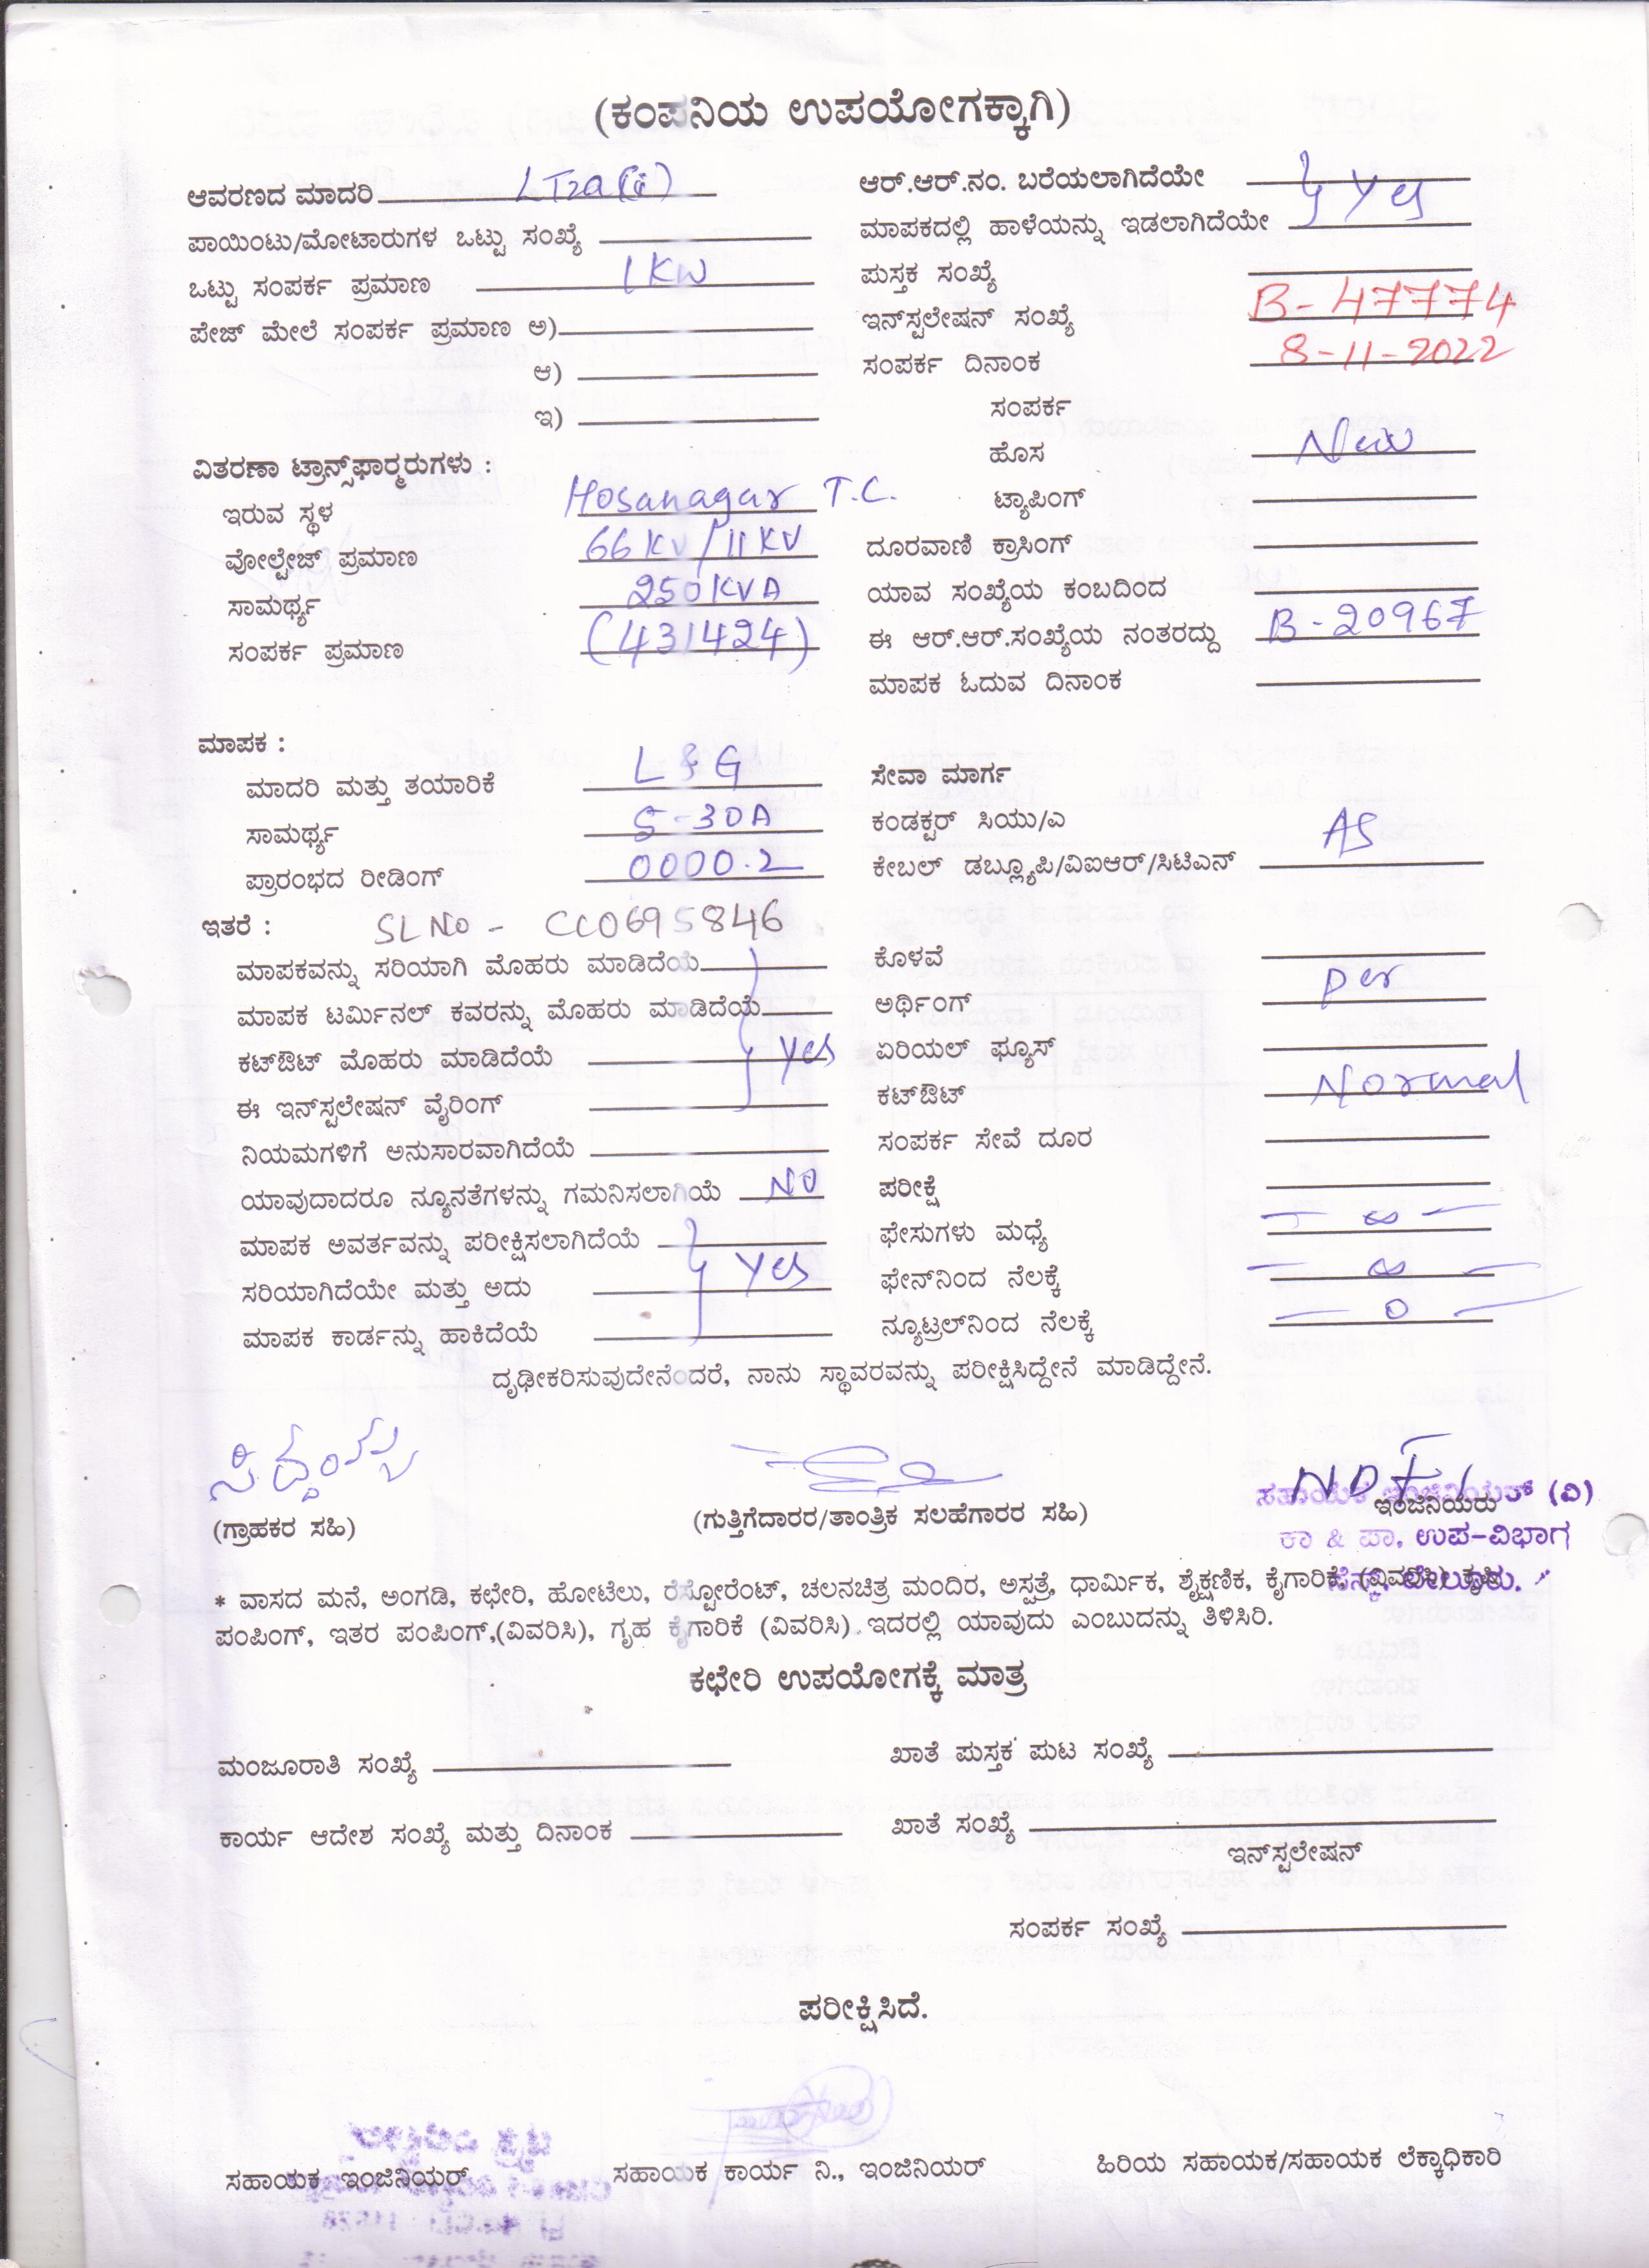 (ಕಂಪನಿಯ ಉಪಯೋಗಕ್ಕಾಗಿ)
ಆವರಣದ ಮಾದರಿ LT2a(ii)
ಪಾಯಿಂಟು/ಮೋಟಾರುಗಳ ಒಟ್ಟು ಸಂಖ್ಯೆ
ಒಟ್ಟು ಸಂಪರ್ಕ ಪ್ರಮಾಣ 1KW
ಪೇಜ್ ಮೇಲೆ ಸಂಪರ್ಕ ಪ್ರಮಾಣ ಅ)
ಆ)
ಇ)
ವಿತರಣಾ ಟ್ರಾನ್ಸ್‌ಫಾರ್‍ಮರುಗಳು :
ಇರುವ ಸ್ಥಳ Hosanagar T.C.
ವೋಲ್ಟೇಜ್ ಪ್ರಮಾಣ 66KV/11KV
ಸಾಮರ್ಥ್ಯ 250KVA
ಸಂಪರ್ಕ ಪ್ರಮಾಣ (431424)
ಆರ್.ಆರ್.ನಂ. ಬರೆಯಲಾಗಿದೆಯೇ
ಮಾಪಕದಲ್ಲಿ ಹಾಳೆಯನ್ನು ಇಡಲಾಗಿದೆಯೇ Yes
ಪುಸ್ತಕ ಸಂಖ್ಯೆ
ಇನ್‌ಸ್ಟಲೇಷನ್ ಸಂಖ್ಯೆ B-47774
ಸಂಪರ್ಕ ದಿನಾಂಕ 8-11-2022
ಸಂಪರ್ಕ
ಹೊಸ New
ಟ್ಯಾಪಿಂಗ್
ದೂರವಾಣಿ ಕ್ರಾಸಿಂಗ್
ಯಾವ ಸಂಖ್ಯೆಯ ಕಂಬದಿಂದ
ಈ ಆರ್.ಆರ್.ಸಂಖ್ಯೆಯ ನಂತರದ್ದು B-20967
ಮಾಪಕ ಓದುವ ದಿನಾಂಕ
ಮಾಪಕ :
ಮಾದರಿ ಮತ್ತು ತಯಾರಿಕೆ L&G
ಸಾಮರ್ಥ್ಯ 5-30A
ಪ್ರಾರಂಭದ ರೀಡಿಂಗ್ 0000.2
ಇತರೆ : SL No - CC0695846
ಮಾಪಕವನ್ನು ಸರಿಯಾಗಿ ಮೊಹರು ಮಾಡಿದೆಯೆ
ಮಾಪಕ ಟರ್ಮಿನಲ್ ಕವರನ್ನು ಮೊಹರು ಮಾಡಿದೆಯೆ
ಕಟ್‌ಔಟ್ ಮೊಹರು ಮಾಡಿದೆಯೆ Yes
ಈ ಇನ್‌ಸ್ಟಲೇಷನ್ ವೈರಿಂಗ್
ನಿಯಮಗಳಿಗೆ ಅನುಸಾರವಾಗಿದೆಯೆ
ಯಾವುದಾದರೂ ನ್ಯೂನತೆಗಳನ್ನು ಗಮನಿಸಲಾಗಿಯೆ NO
ಮಾಪಕ ಅವರ್ತವನ್ನು ಪರೀಕ್ಷಿಸಲಾಗಿದೆಯೆ
ಸರಿಯಾಗಿದೆಯೇ ಮತ್ತು ಅದು Yes
ಮಾಪಕ ಕಾರ್ಡನ್ನು ಹಾಕಿದೆಯೆ
ಸೇವಾ ಮಾರ್ಗ
ಕಂಡಕ್ಟರ್ ಸಿಯು/ಎ AS
ಕೇಬಲ್ ಡಬ್ಲ್ಯೂಪಿ/ವಿಐಆರ್/ಸಿಟಿಎನ್
ಕೊಳವೆ
ಅರ್ಥಿಂಗ್ per
ಏರಿಯಲ್ ಫ್ಯೂಸ್
ಕಟ್‌ಔಟ್ Normal
ಸಂಪರ್ಕ ಸೇವೆ ದೂರ
ಪರೀಕ್ಷೆ
ಫೇಸುಗಳು ಮಧ್ಯೆ - ∞ -
ಫೇನ್‌ನಿಂದ ನೆಲಕ್ಕೆ - ∞ -
ನ್ಯೂಟ್ರಲ್‌ನಿಂದ ನೆಲಕ್ಕೆ - 0 -
ದೃಢೀಕರಿಸುವುದೇನೆಂದರೆ, ನಾನು ಸ್ಥಾವರವನ್ನು ಪರೀಕ್ಷಿಸಿದ್ದೇನೆ ಮಾಡಿದ್ದೇನೆ.
(ಗ್ರಾಹಕರ ಸಹಿ) (ಗುತ್ತಿಗೆದಾರರ/ತಾಂತ್ರಿಕ ಸಲಹೆಗಾರರ ಸಹಿ) ಇಂಜಿನಿಯರು
ಸಹಾಯಕ ಇಂಜಿನಿಯರ್ (ವಿ)
ಕಾ & ಪಾ. ಉಪ-ವಿಭಾಗ
* ವಾಸದ ಮನೆ, ಅಂಗಡಿ, ಕಛೇರಿ, ಹೋಟೆಲು, ರೆಸ್ಟೋರೆಂಟ್, ಚಲನಚಿತ್ರ ಮಂದಿರ, ಅಸ್ಪತ್ರೆ, ಧಾರ್ಮಿಕ, ಶೈಕ್ಷಣಿಕ, ಕೈಗಾರಿಕೆ, (ವಿವರಿಸಿ) ಕೃಷಿ
ಪಂಪಿಂಗ್, ಇತರ ಪಂಪಿಂಗ್,(ವಿವರಿಸಿ), ಗೃಹ ಕೈಗಾರಿಕೆ (ವಿವರಿಸಿ) ಇದರಲ್ಲಿ ಯಾವುದು ಎಂಬುದನ್ನು ತಿಳಿಸಿರಿ.
ಕಛೇರಿ ಉಪಯೋಗಕ್ಕೆ ಮಾತ್ರ
ಮಂಜೂರಾತಿ ಸಂಖ್ಯೆ ಖಾತೆ ಪುಸ್ತಕ ಪುಟ ಸಂಖ್ಯೆ
ಕಾರ್ಯ ಆದೇಶ ಸಂಖ್ಯೆ ಮತ್ತು ದಿನಾಂಕ ಖಾತೆ ಸಂಖ್ಯೆ
ಇನ್‌ಸ್ಟಲೇಷನ್
ಸಂಪರ್ಕ ಸಂಖ್ಯೆ
ಪರೀಕ್ಷಿಸಿದೆ.
ಸಹಾಯಕ ಇಂಜಿನಿಯರ್ ಸಹಾಯಕ ಕಾರ್ಯ ನಿ., ಇಂಜಿನಿಯರ್ ಹಿರಿಯ ಸಹಾಯಕ/ಸಹಾಯಕ ಲೆಕ್ಕಾಧಿಕಾರಿ